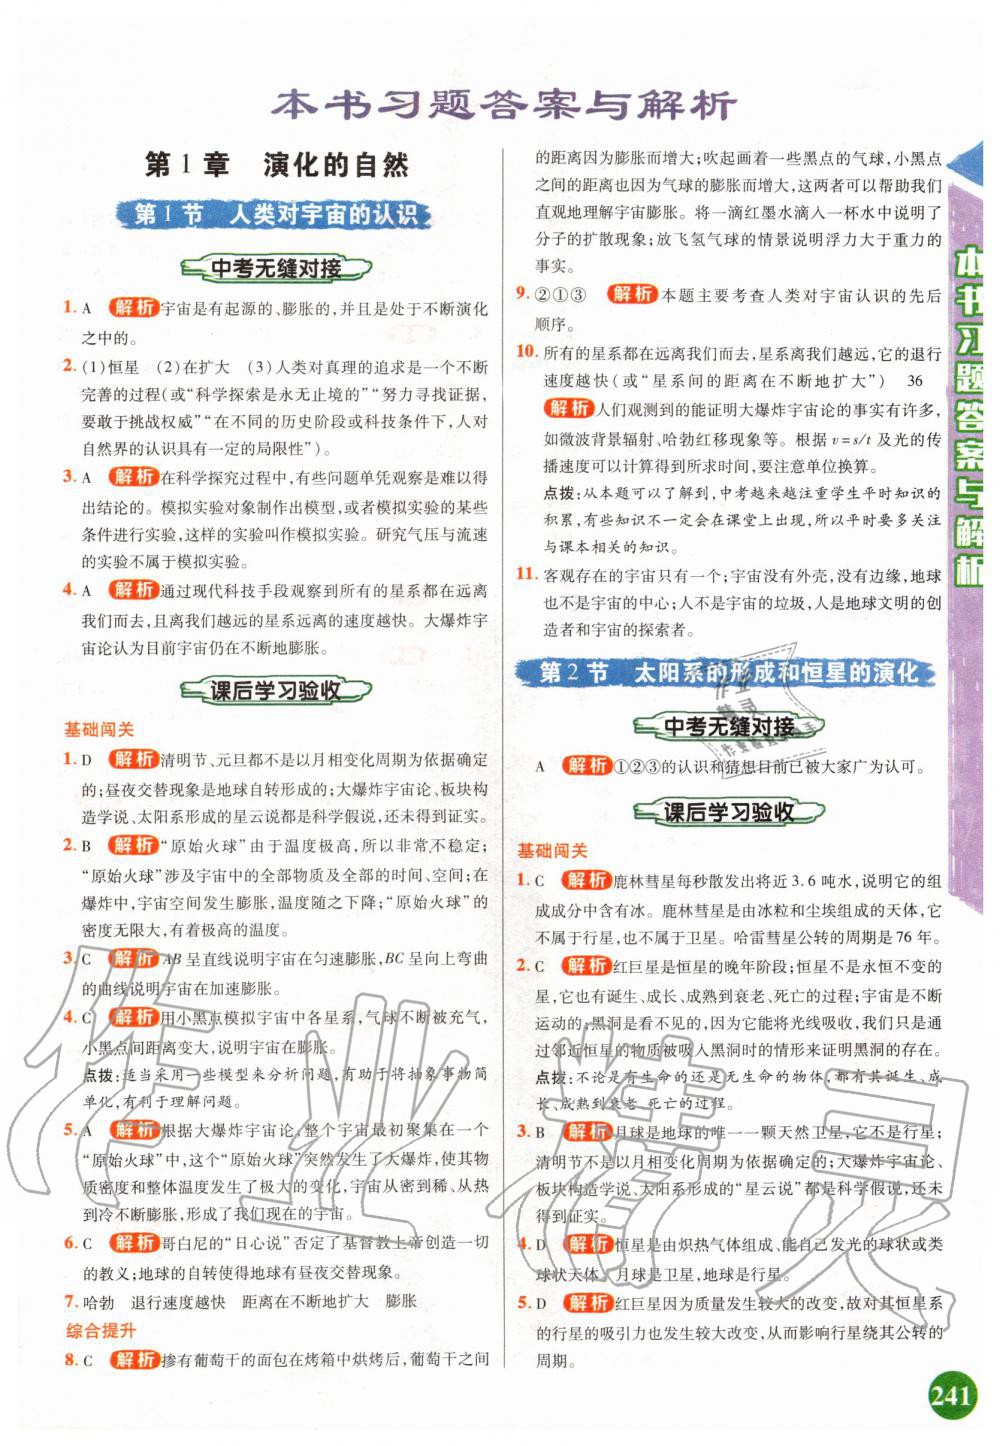 本书习题答案与解析
第1章 演化的自然
第1节 人类对宇宙的认识
中考无缝对接
1. A 解析 宇宙是有起源的、膨胀的，并且是处于不断演化
之中的。
2. (1)恒星 (2)在扩大 (3)人类对真理的追求是一个不断
完善的过程(或“科学探索是永无止境的”“努力寻找证据，
要敢于挑战权威”“在不同的历史阶段或科技条件下，人对
自然界的认识具有一定的局限性”)。
3. A 解析 在科学探究过程中，有些问题单凭观察是难以得
出结论的。模拟实验对象制作出模型，或者模拟实验的某些
条件进行实验，这样的实验叫作模拟实验。研究气压与流速
的实验不属于模拟实验。
4. A 解析 通过现代科技手段观察到所有的星系都在远离
我们而去，且离我们越远的星系远离的速度越快。大爆炸宇
宙论认为目前宇宙仍在不断地膨胀。
课后学习验收
基础闯关
1. D 解析 清明节、元旦都不是以月相变化周期为依据确定
的；昼夜交替现象是地球自转形成的；大爆炸宇宙论、板块构
造学说、太阳系形成的星云说都是科学假说，还未得到证实。
2. B 解析 “原始火球”由于温度极高，所以非常不稳定；
“原始火球”涉及宇宙中的全部物质及全部的时间、空间；在
爆炸中，宇宙空间发生膨胀，温度随之下降；“原始火球”的
密度无限大，有着极高的温度。
3. C 解析 AB呈直线说明宇宙在匀速膨胀，BC呈向上弯曲
的曲线说明宇宙在加速膨胀。
4. C 解析 用小黑点模拟宇宙中各星系，气球不断被充气，
小黑点间距离变大，说明宇宙在膨胀。
点拨：适当采用一些模型来分析问题，有助于将抽象事物简
单化，有利于理解问题。
5. A 解析 根据大爆炸宇宙论，整个宇宙最初聚集在一个
“原始火球”中，这个“原始火球”突然发生了大爆炸，使其物
质密度和整体温度发生了极大的变化，宇宙从密到稀、从热
到冷不断膨胀，形成了我们现在的宇宙。
6. C 解析 哥白尼的“日心说”否定了基督教上帝创造一切
的教义；地球的自转使得地球有昼夜交替现象。
7. 哈勃 退行速度越快 距离在不断地扩大 膨胀
综合提升
8. C 解析 掺有葡萄干的面包在烤箱中烘烤后，葡萄干之间
的距离因为膨胀而增大；吹起画着一些黑点的气球，小黑点
之间的距离也因为气球的膨胀而增大，这两者可以帮助我们
直观地理解宇宙膨胀。将一滴红墨水滴入一杯水中说明了
分子的扩散现象；放飞氢气球的情景说明浮力大于重力的
事实。
9. ②①③ 解析 本题主要考查人类对宇宙认识的先后
顺序。
10. 所有的星系都在远离我们而去，星系离我们越远，它的退行
速度越快(或“星系间的距离在不断地扩大”) 36
解析 人们观测到的能证明大爆炸宇宙论的事实有许多，
如微波背景辐射、哈勃红移现象等。根据v=s/t及光的传
播速度可以计算得到所求时间，要注意单位换算。
点拨：从本题可以了解到，中考越来越注重学生平时知识的
积累，有些知识不一定会在课堂上出现，所以平时要多关注
与课本相关的知识。
11. 客观存在的宇宙只有一个；宇宙没有外壳，没有边缘，地球
也不是宇宙的中心；人不是宇宙的垃圾，人是地球文明的创
造者和宇宙的探索者。
第2节 太阳系的形成和恒星的演化
中考无缝对接
A 解析 ①②③的认识和猜想目前已被大家广为认可。
课后学习验收
基础闯关
1. C 解析 鹿林彗星每秒散发出将近3.6吨水，说明它的组
成成分中含有冰。鹿林彗星是由冰粒和尘埃组成的天体，它
不属于行星，也不属于卫星。哈雷彗星公转的周期是76年。
2. C 解析 红巨星是恒星的晚年阶段；恒星不是永恒不变的星
，它也有诞生、成长、成熟到衰老、死亡的过程；宇宙是不断
运动的；黑洞是看不见的，因为它能将光线吸收，我们只是通
过邻近恒星的物质被吸入黑洞时的情形来证明黑洞的存在。
点拨：不论是有生命的还是无生命的物体，都有诞生、成
长、成熟到衰老、死亡的过程。
3. B 解析 月球是地球的唯一一颗天然卫星，它不是行星；
清明节不是以月相变化周期为依据确定的；大爆炸宇宙论、
板块构造学说、太阳系形成的“星云说”都是科学假说，还未
得到证实。
4. D 解析 恒星是由炽热气体组成、能自己发光的球状或类
球状天体。月球是卫星，地球是行星。
5. D 解析 红巨星因为质量发生较大的改变，故对其恒星系
的行星的吸引力也发生较大改变，从而影响行星绕其公转的
周期。
本书习题答案与解析
241
作业精灵